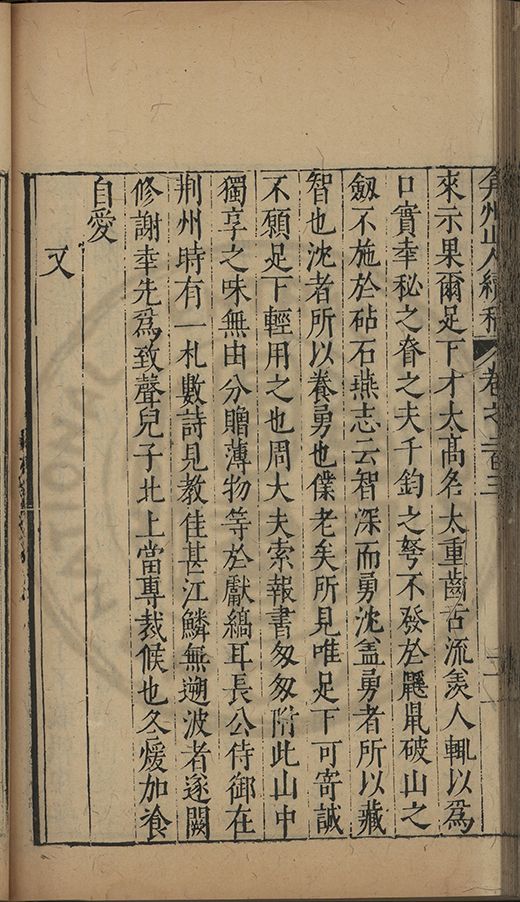 弇州山人續稿 卷之二百三
來示果爾足下才太高名太重齒舌流羨人輒以爲
口實幸秘之眷之夫千鈞之弩不發於鼷鼠破山之
劔不施於砧石燕志云智深而勇沈葢勇者所以藏
智也沈者所以養勇也僕老矣所見唯足下可寄誠
不願足下輕用之也周大夫索報書匆匆附此山中
獨享之味無由分贈薄物等於獻縞耳長公侍御在
荆州時有一札數詩見教佳甚江鱗無遡波者逐闕
修謝幸先爲致聲兒子北上當專裁候也冬煖加飡
自愛
又